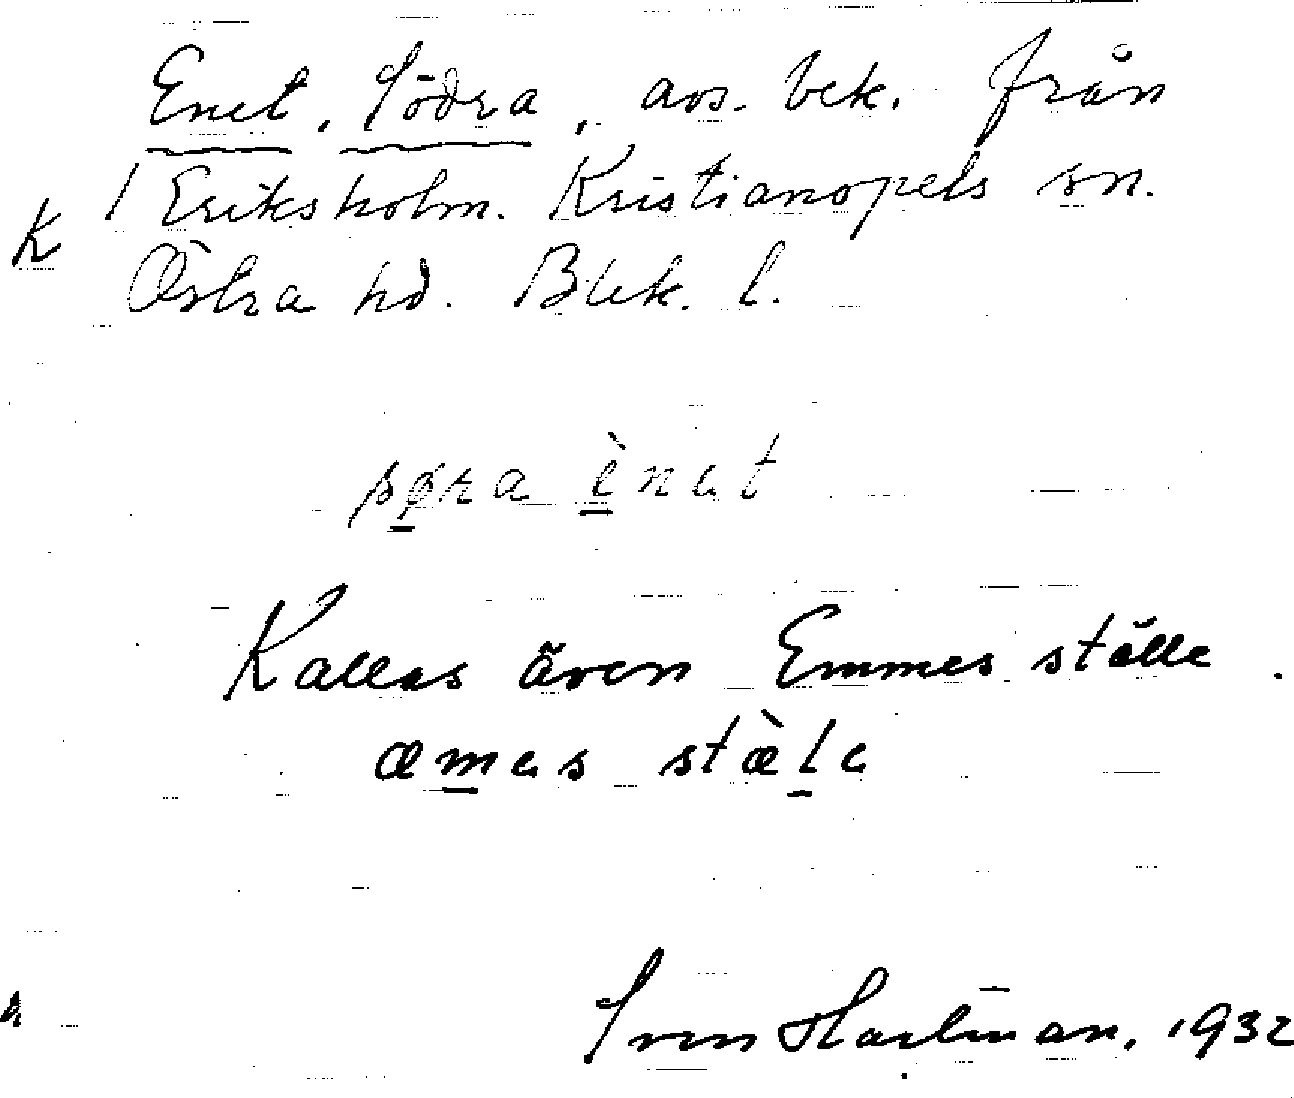 Enet, Södra, avs. bek. från
/ Eriksholm. Kristianopels sn.
K
Östra hd. Blek. l.
søra ènet
Kallas även Emmes ställe.
æmes stæ̀le
Sven Hartman, 1932